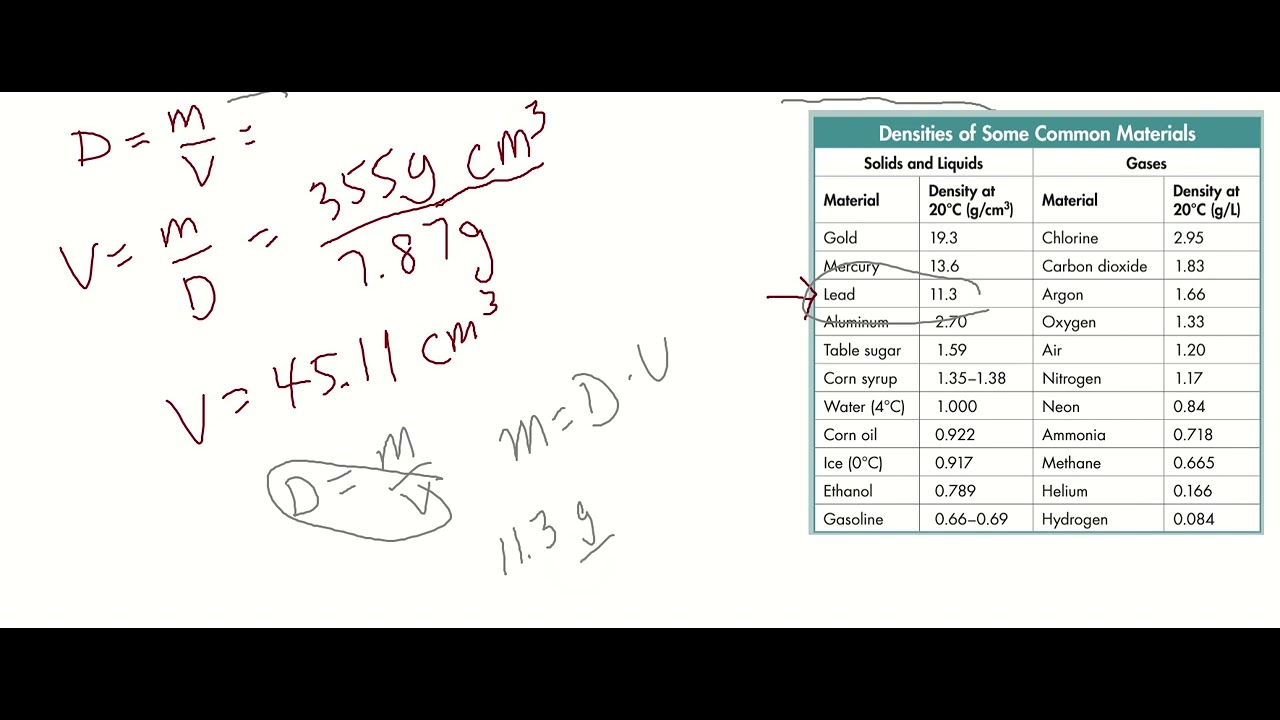 D = m/V =
V = m/D = 355g cm³/7.87g
V = 45.11 cm³
D = m/V
m = D · V
11.3 g
Densities of Some Common Materials
Solids and Liquids Gases
Material Density at 20°C (g/cm³) Material Density at 20°C (g/L)
Gold 19.3 Chlorine 2.95
Mercury 13.6 Carbon dioxide 1.83
Lead 11.3 Argon 1.66
Aluminum 2.70 Oxygen 1.33
Table sugar 1.59 Air 1.20
Corn syrup 1.35–1.38 Nitrogen 1.17
Water (4°C) 1.000 Neon 0.84
Corn oil 0.922 Ammonia 0.718
Ice (0°C) 0.917 Methane 0.665
Ethanol 0.789 Helium 0.166
Gasoline 0.66–0.69 Hydrogen 0.084